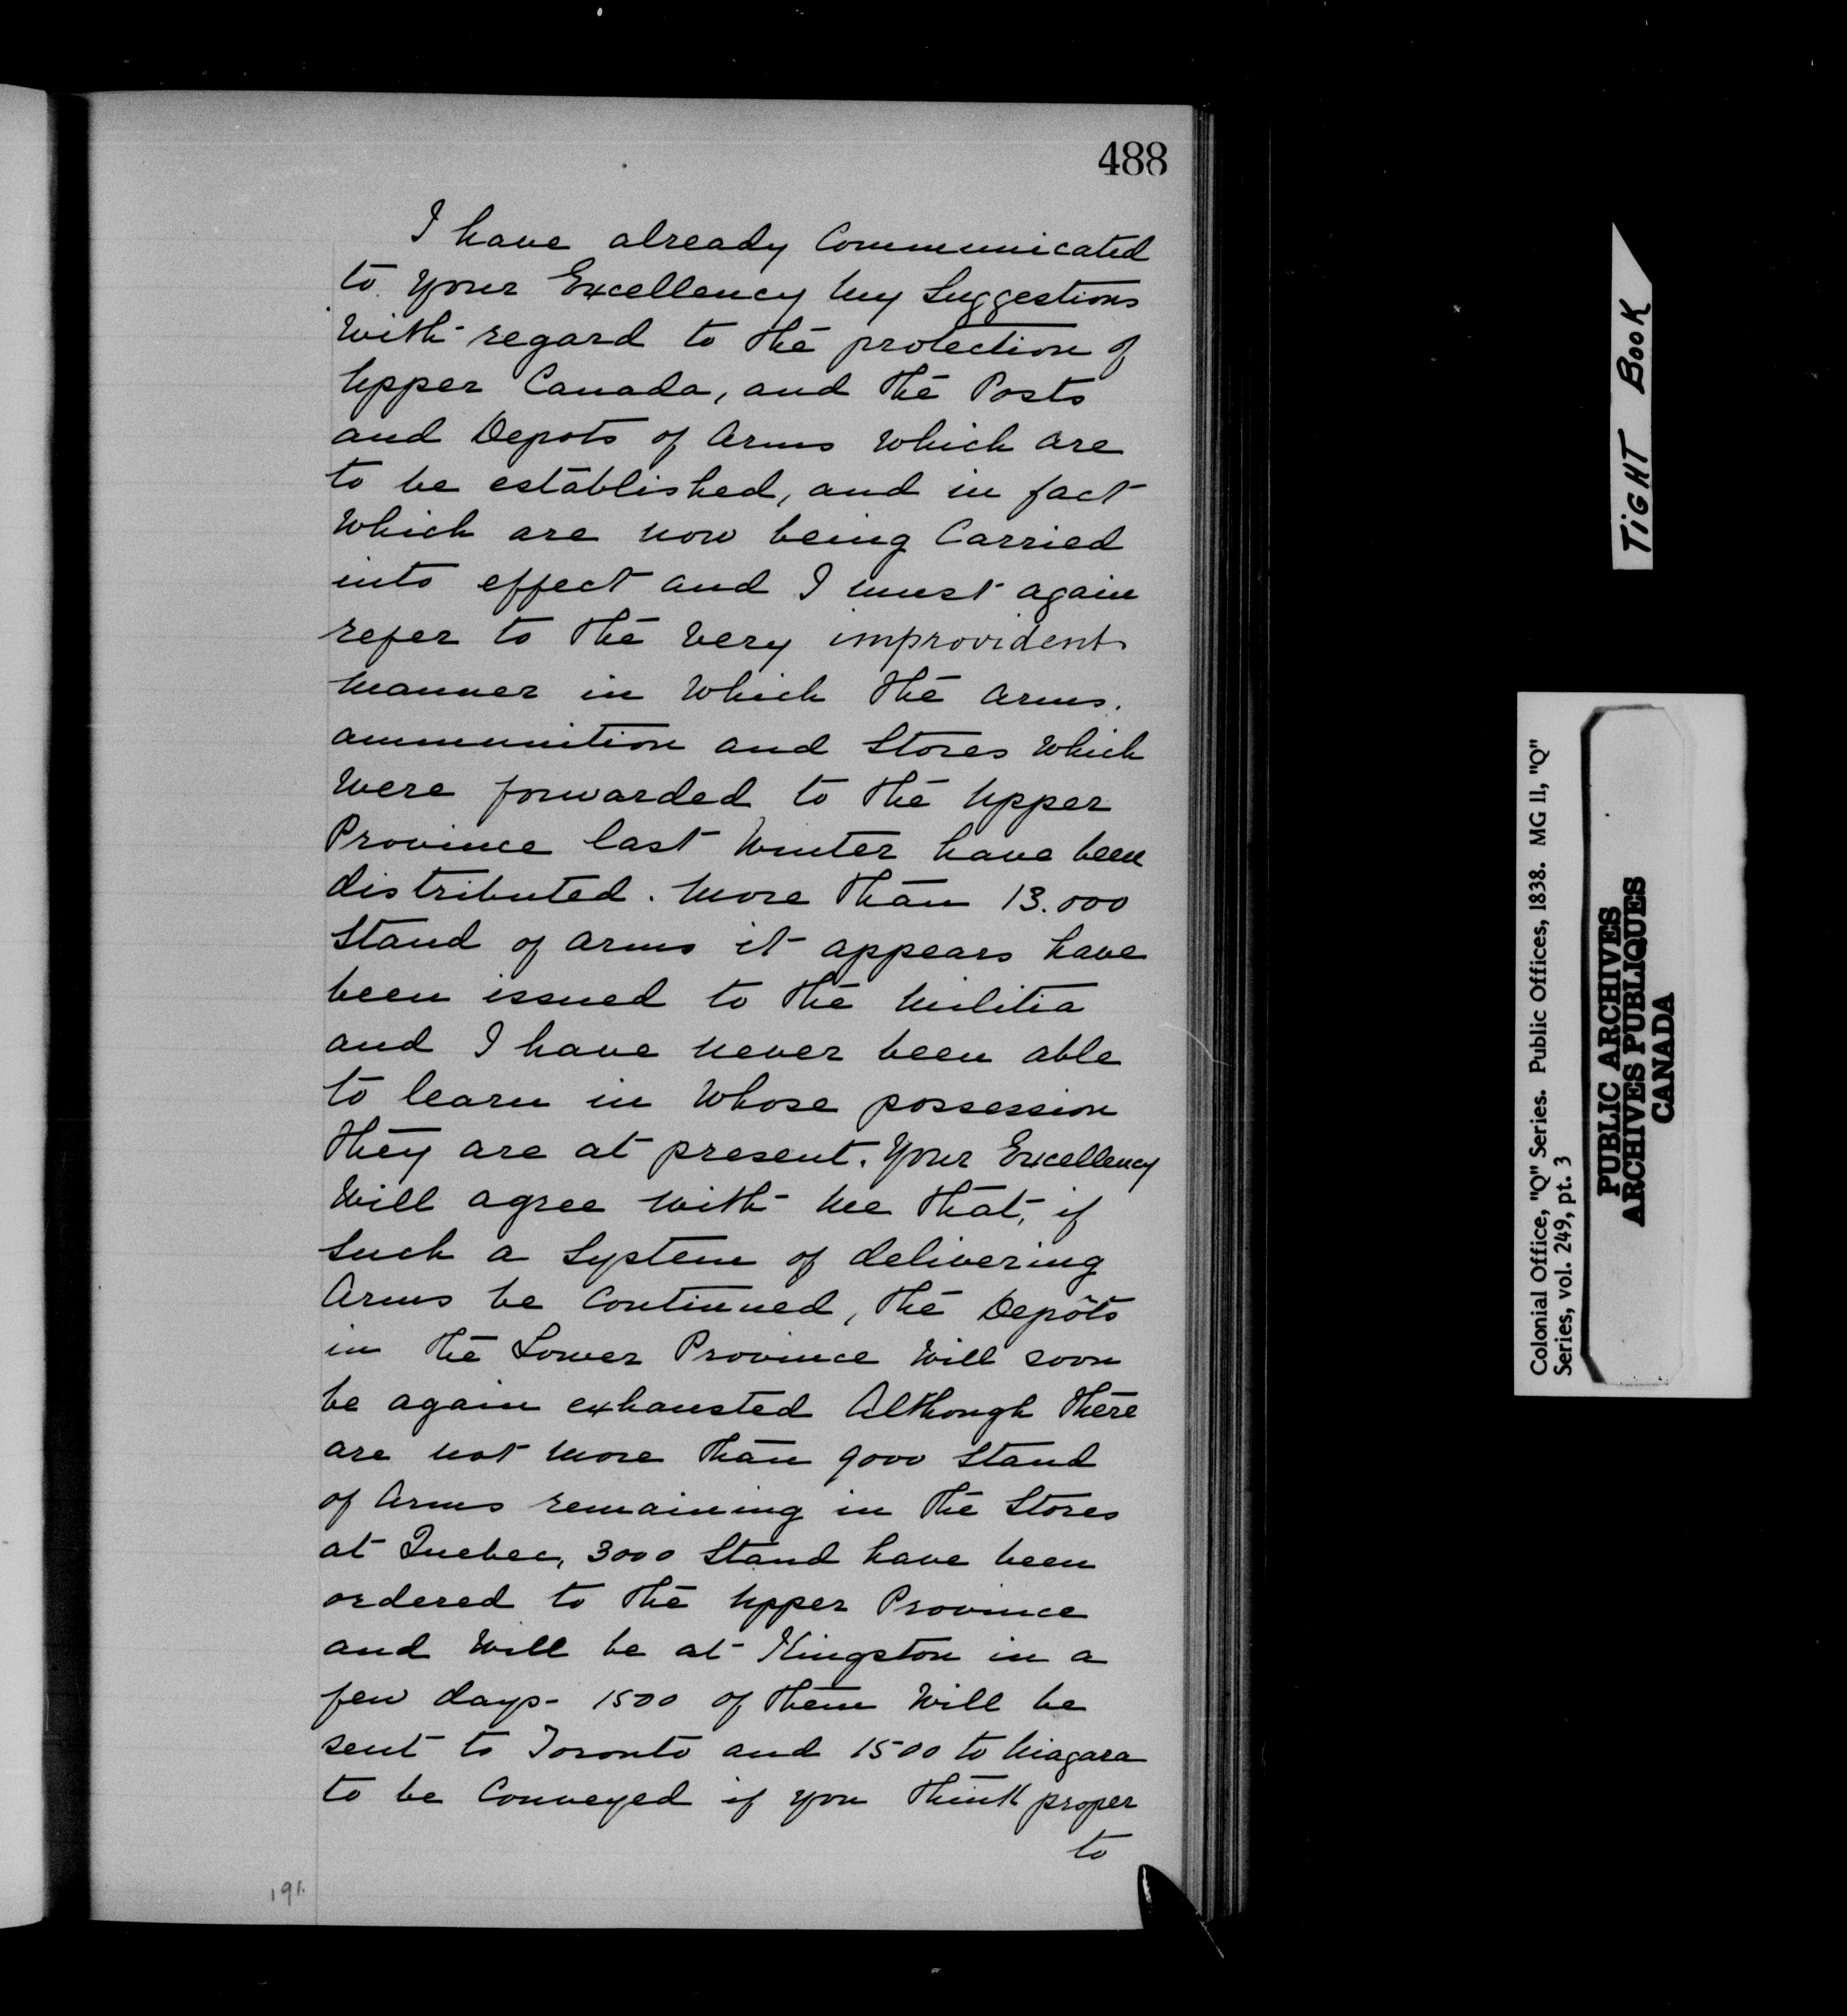 488
I have already Communicated
to Your Excellency My Suggestions
With regard to the protection of
Upper Canada, and the Posts
and Depots of Arms Which are
to be established, and in fact
Which are now being Carried
into effect and I must again
refer to the Very improvident
Manner in Which the Arms.
ammunition and Stores Which
Were forwarded to the Upper
Province last Winter have been
distributed. More than 13.000
Stand of Arms it appears have
been issued to the Militia
and I have never been able
to learn in Whose possession
they are at present. Your Excellency
Will agree With Me that, if
Such a System of delivering
Arms be Continued, the Depôts
in the Lower Province Will soon
be again exhausted Although there
are not More than 9000 Stand
of Arms remaining in the Stores
at Quebec, 3000 Stand have been
ordered to the Upper Province
and Will be at Kingston in a
few days - 1500 of them Will be
sent to Toronto and 1500 to Niagara
to be Conveyed if you think proper
to
191.
TIGHT BOOK
Colonial Office, "Q" Series. Public Offices, 1838. MG 11, "Q"
Series, vol. 249, pt. 3
PUBLIC ARCHIVES
ARCHIVES PUBLIQUES
CANADA